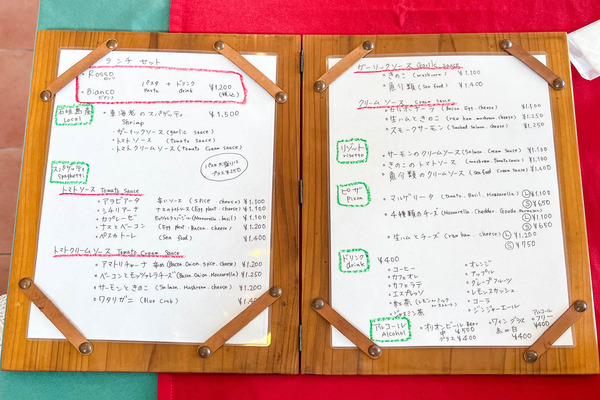 ランチ セット
・Rosso ロッソ
・Bianco ビアンコ
パスタ + ドリンク
Pasta drink
¥1,200 (税込)
石垣島産 Local
・車海老のスパゲッティ ¥1,500
Shrimp
・ガーリックソース (garlic sauce)
・トマトソース (Tomato sauce)
・トマトクリームソース (Tomato Cream sauce)
パスタ大盛りは プラス¥250
スパゲッティ Spaghetti
トマトソース Tomato sauce
・アラビアータ 辛いソース (spice cheese) ¥1,100
・シチリアーナ ナスのトマトソース (Egg plant cheese) ¥1,100
・カプレーゼ (Mozzarella, basil) ¥1,100
・ナスとベーコン (Egg plant, Bacon, cheese) ¥1,200
・ペスカトーレ (Sea food) ¥1,400
トマトクリームソース Tomato Cream sauce
・アマトリチャーナ 辛め (Bacon, Onion, spice, cheese) ¥1,200
・ベーコンとモッツァレラチーズ (Bacon, Onion, Mozzarella) ¥1,250
・サーモンときのこ (Salmon, Mushroom, cheese) ¥1,200
・ワタリガニ (Blue Crab) ¥1,400
ガーリックソース Garlic sauce
・きのこ (mushroom) ¥1,100
・魚介類 (Sea food) ¥1,400
クリームソース Cream sauce
・カルボナーラ (Bacon, Egg, cheese) ¥1,100
・生ハムときのこ (raw ham, mushroom, cheese) ¥1,250
・スモークサーモン (Smoked salmon, cheese) ¥1,250
リゾット risotto
・サーモンのクリームソース (Salmon Cream sauce)
・きのこのトマトソース (mushroom, Tomato sauce)
・魚介類のクリームソース (Sea food Cream sauce)
ピッザ Pizza
・マルゲリータ (Tomato, Basil, Mozzarella) Ⓛ¥1,100
Ⓢ¥650
・4種類のチーズ (Mozzarella, Cheddar, Gouda, Parmesan) Ⓛ¥1,100
Ⓢ¥650
・生ハムとチーズ (raw ham, cheese) Ⓛ¥1,200
Ⓢ¥750
ドリンク drink
¥400
・コーヒー
・カフェオレ
・カフェラテ
・エスプレッソ
・紅茶
・ジャスミン茶
・オレンジ
・アップル
・グレープフルーツ
・レモンスカッシュ
・コーラ
・ジンジャーエール
アルコール Alcohol
・オリオンビール Beer
中 ¥500
グラス ¥400
・ワイン グラス
赤・白
¥400
・アルコールフリー
¥400